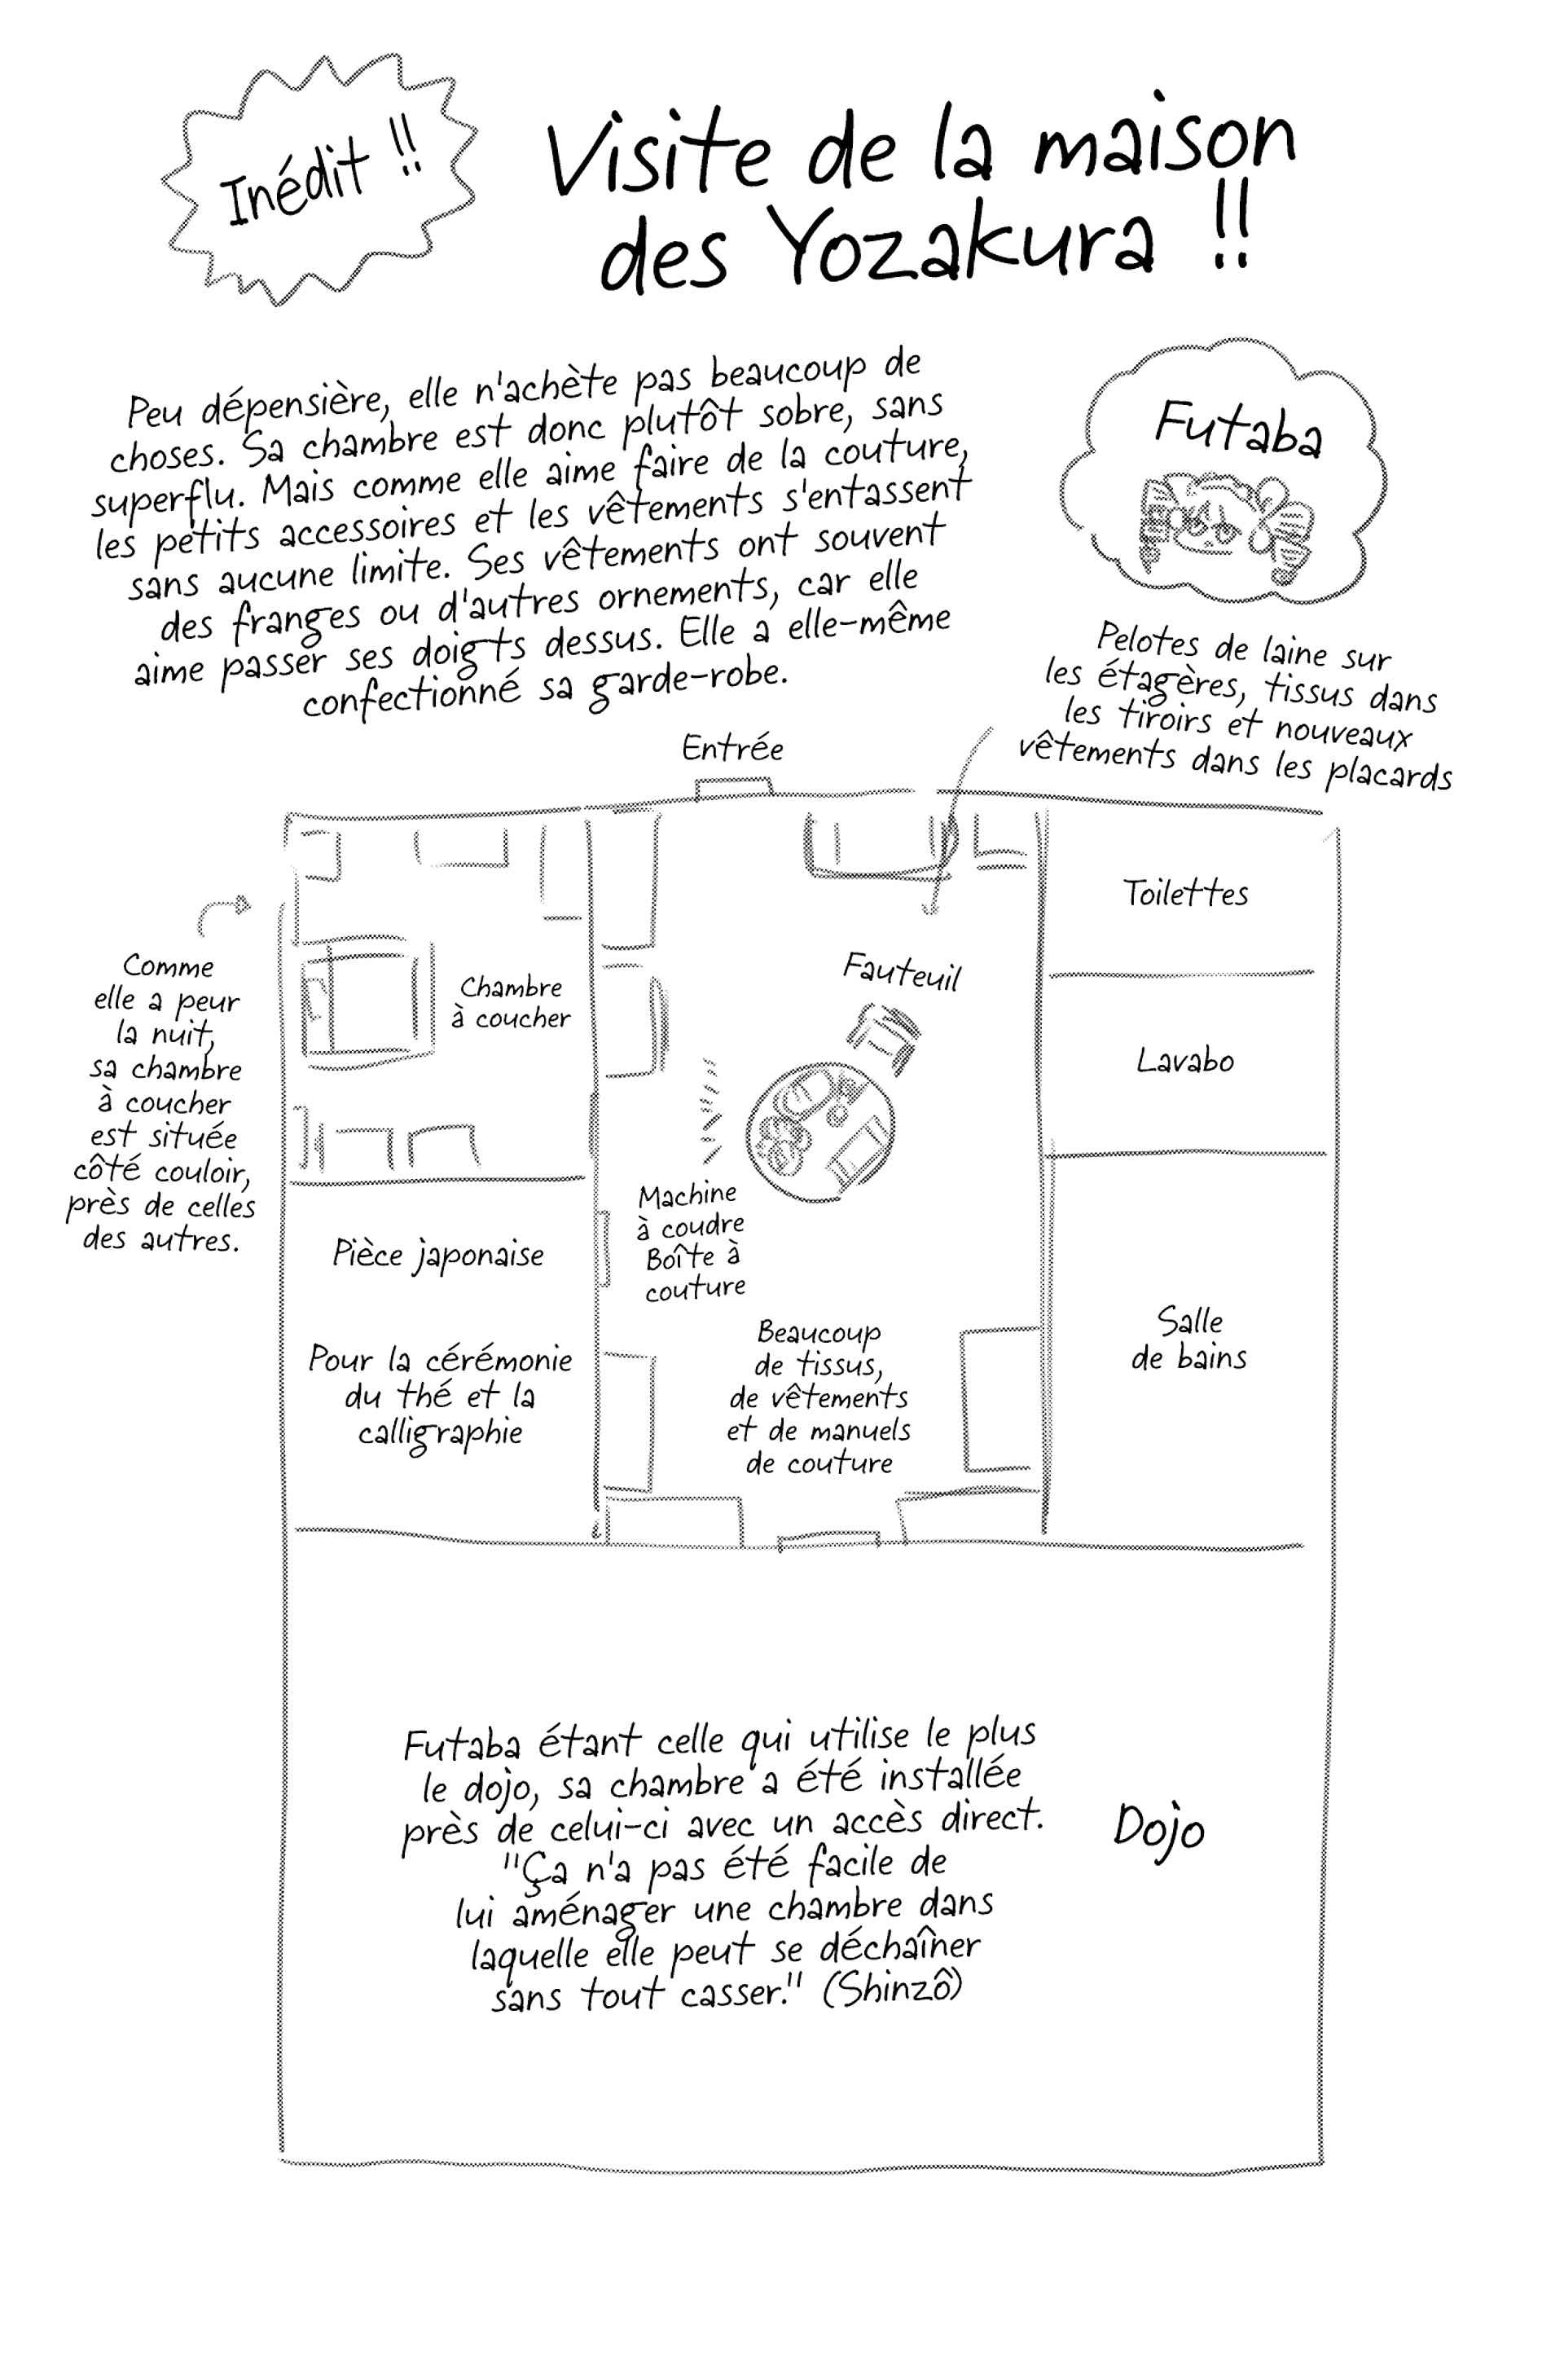 Inédit !!
Visite de la maison
des Yozakura !!
Peu dépensière, elle n'achète pas beaucoup de
choses. Sa chambre est donc plutôt sobre, sans
superflu. Mais comme elle aime faire de la couture,
les petits accessoires et les vêtements s'entassent
sans aucune limite. Ses vêtements ont souvent
des franges ou d'autres ornements, car elle
aime passer ses doigts dessus. Elle a elle-même
confectionné sa garde-robe.
Futaba
Pelotes de laine sur
les étagères, tissus dans
les tiroirs et nouveaux
vêtements dans les placards
Entrée
Comme
elle a peur
la nuit,
sa chambre
à coucher
est située
côté couloir,
près de celles
des autres.
Chambre
à coucher
Fauteuil
Toilettes
Lavabo
Machine
à coudre
Boîte à
couture
Pièce japonaise
Pour la cérémonie
du thé et la
calligraphie
Beaucoup
de tissus,
de vêtements
et de manuels
de couture
Salle
de bains
Futaba étant celle qui utilise le plus
le dojo, sa chambre a été installée
près de celui-ci avec un accès direct.
"Ça n'a pas été facile de
lui aménager une chambre dans
laquelle elle peut se déchaîner
sans tout casser." (Shinzô)
Dojo